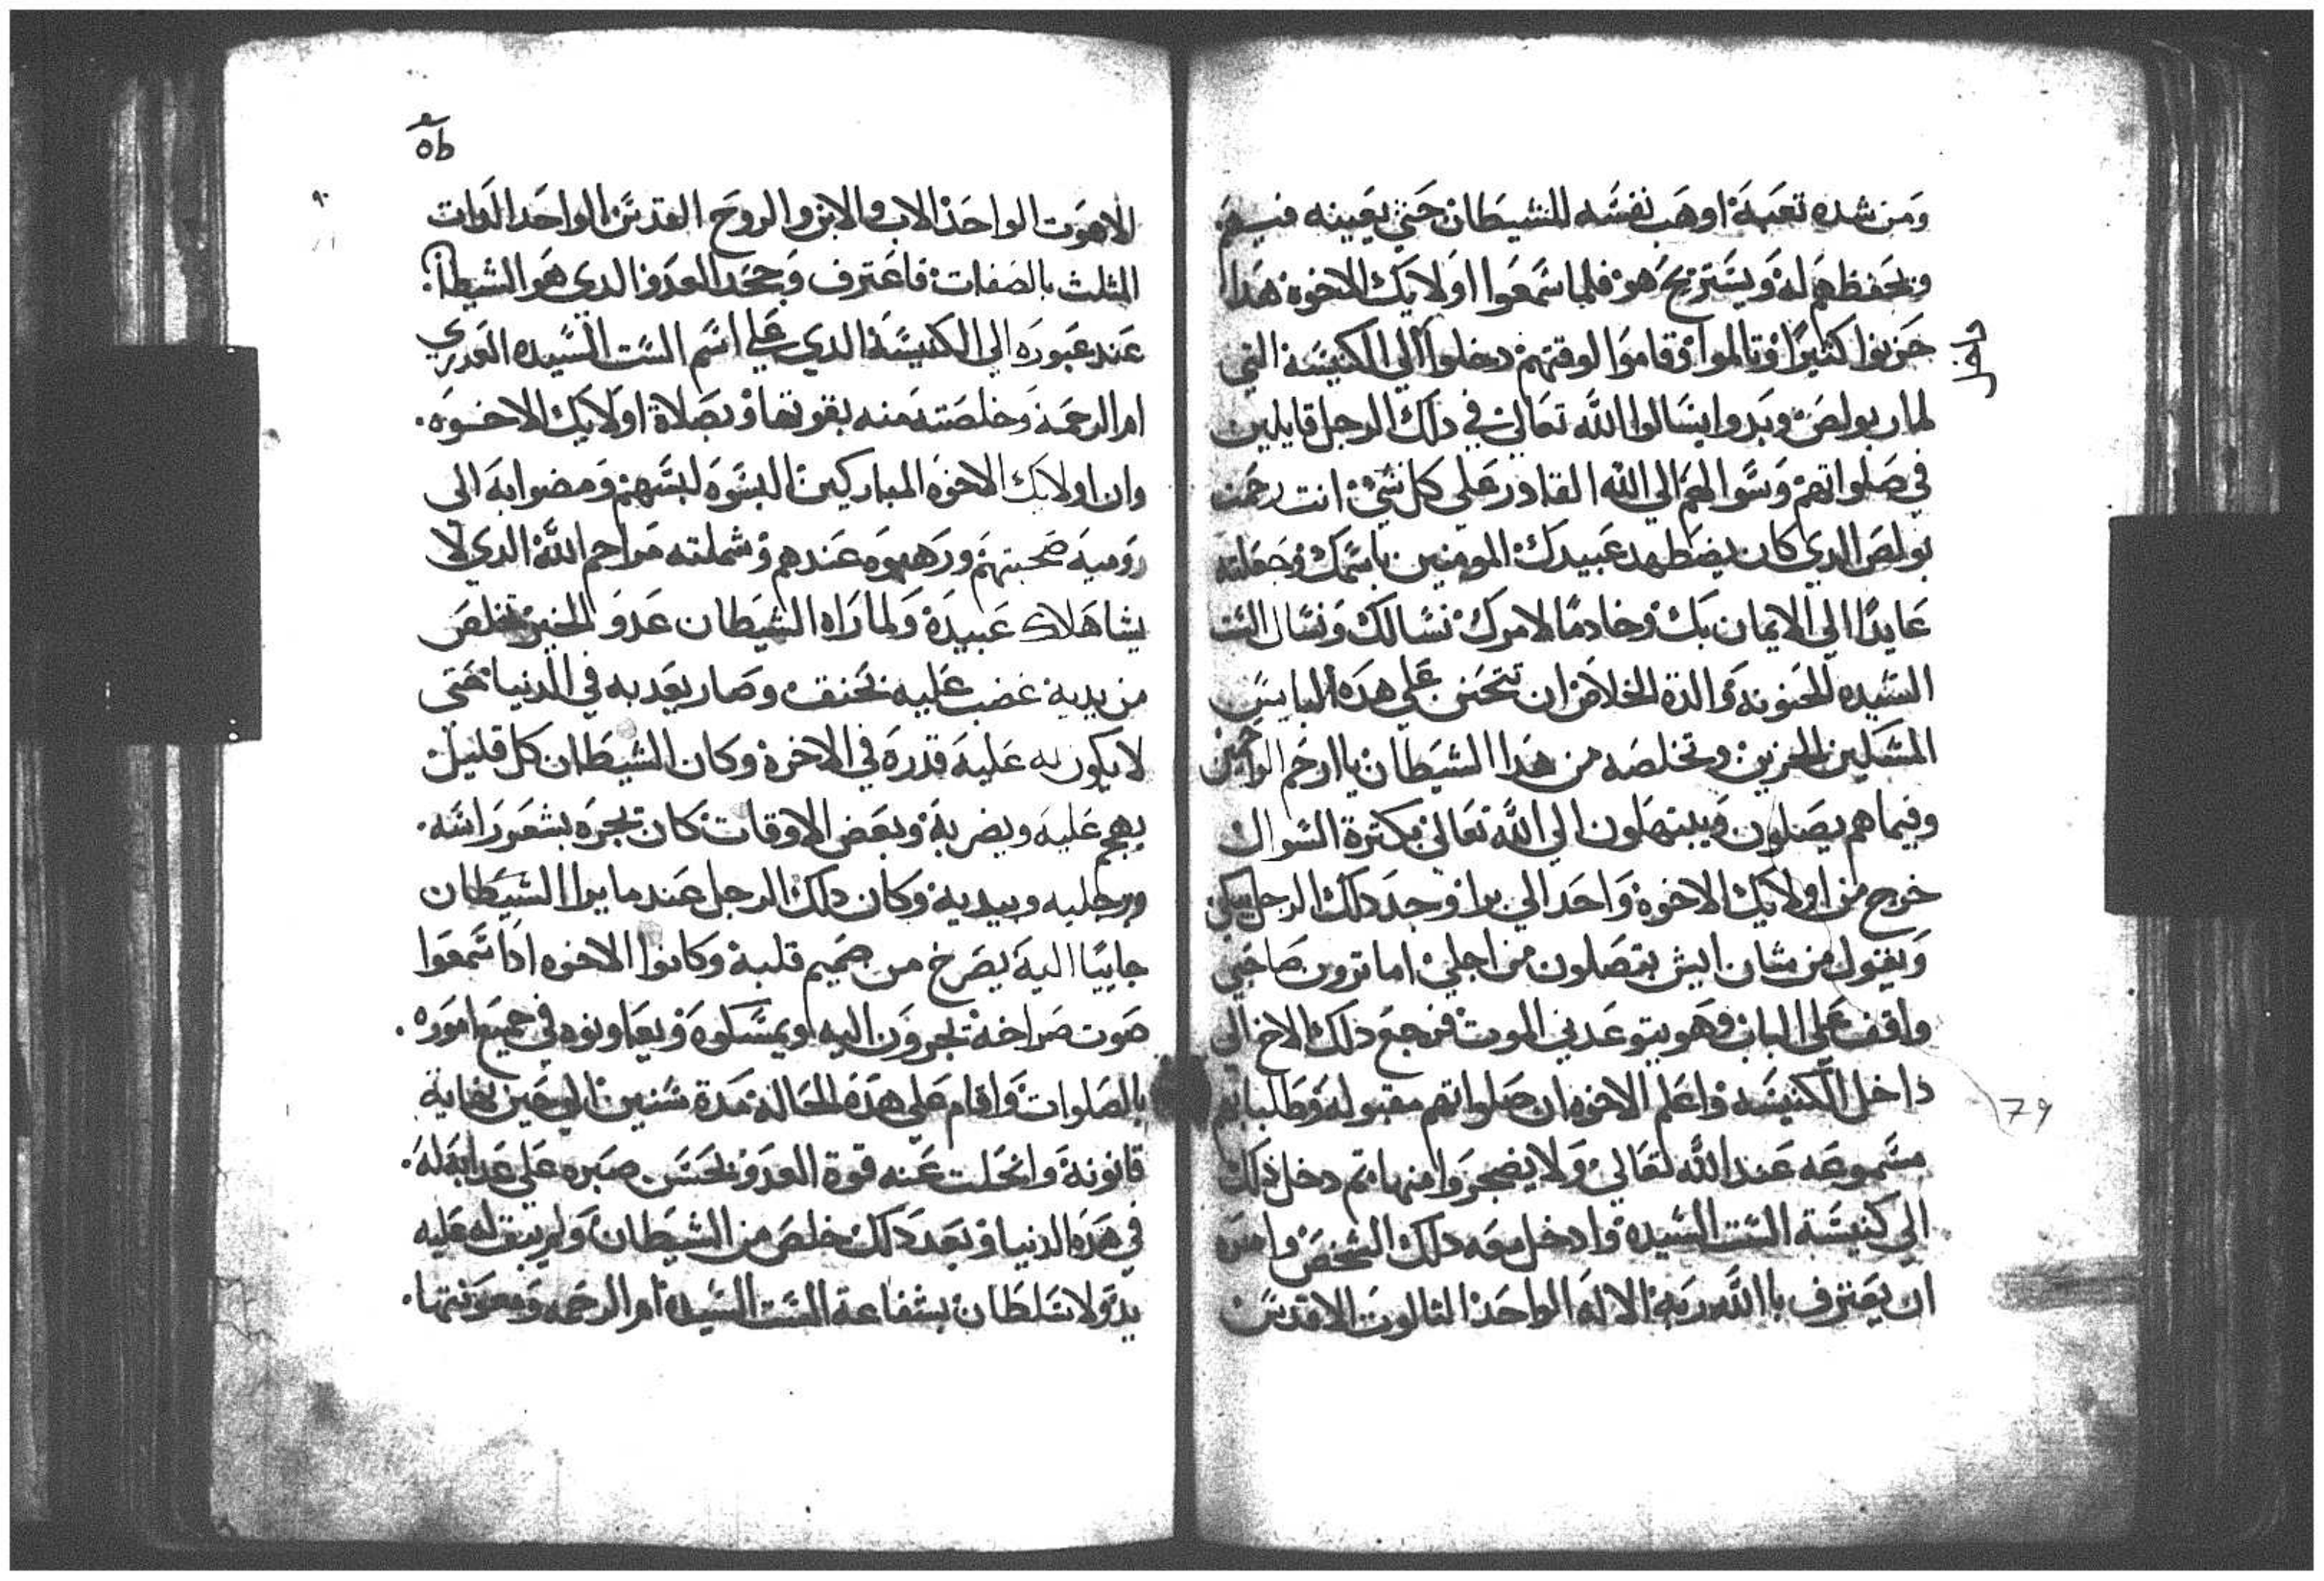 ومن شده تعبه اوهب نفسه للشيطان حتي يعينه فيهم
ويحفظهم له ويستريح هو فلما سمعوا اولايك الاخوه هدا
حزنوا كثيرًا وتالموا وقاموا لوقتهم دخلوا الي الكنيسة التي
لمار بولص وبدوا يسالوا الله تعالي في دلك الرجل قايلين
في صلواتهم وسوالهم الي الله القادر علي كل شي انت رحمت
بولص الدي كان يضطهد عبيدك المومنين باسمك وجعلته
عايدًا الي الايمان بك وخادمًا لامرك نسالك ونسال الست
السيده الحنونه والدة الخلاص ان تتحنن علي هده البايس
المسكين الحزين وتخلصه من هدا الشيطان يا ارحم الراحمين
وفيما هم يصلون ويبتهلون الي الله تعالي بكترة السوال
خرج من اولايك الاخوه واحد الي برا وجد دلك الرجل يبكي
ويقول من شان ايش بتصلون من اجلي اما ترون صاحبي
واقف علي الباب وهو يتوعدني الموت فرجع ذلك الاخ الي
داخل الكنيسه واعلم الاخوه ان صلواتهم مقبوله وطلباتهم
مسموعه عند الله تعالي ولا يضجروا منها تم دخل ذلك
الي كنيسة الست السيده وادخل معه دلك الشخص وامره
ان يعترف باالله ربه الاله الواحد التالوت الاقدس
79
٥٦
اللاهوت الواحد الاب والابن والروح القدس الواحد الدات
المثلث بالصفات فاعترف وجحد العدو الدي هو الشيطان
عند عبوره الي الكنيسة الدي علي اسم الست السيده العدري
ام الرحمه وخلصته منه بقوتها وبصلاة اولايك الاخوه.
وان اولايك الاخوه المباركين البسوه لبسهم ومضوا به الي
رومية صحبتهم ورهبوه عندهم وشملته مراحم الله الدي لا
يشا هلاك عبيده ولما راه الشيطان عدو الخير تخلص
من يديه غضب عليه بحنق وصار يعدبه في الدنيا حتي
لا يكون له عليه قدره في الاخره وكان الشيطان كل قليل
يهجم عليه ويضربه وبعض الاوقات كان يجره بشعر راسه.
ورجليه وبيديه وكان دلك الرجل عند ما يرا الشيطان
جاييًا اليه يصرخ من صميم قلبه وكانوا الاخوه ادا سمعوا
صوت صراخه يجرون اليه ويمسكوه ويعاونوه في جميع اموره.
بالصلوات واقام علي هده الحاله مدة سنين الي حين نهاية
قانونه وانحلت عنه قوة العدو بحسن صبره علي عدابه له.
في هده الدنيا وبعد دلك خلص من الشيطان ولم يبق له عليه
يد ولا سلطان بشفاعة الست السيده ام الرحمه ومعونتها.